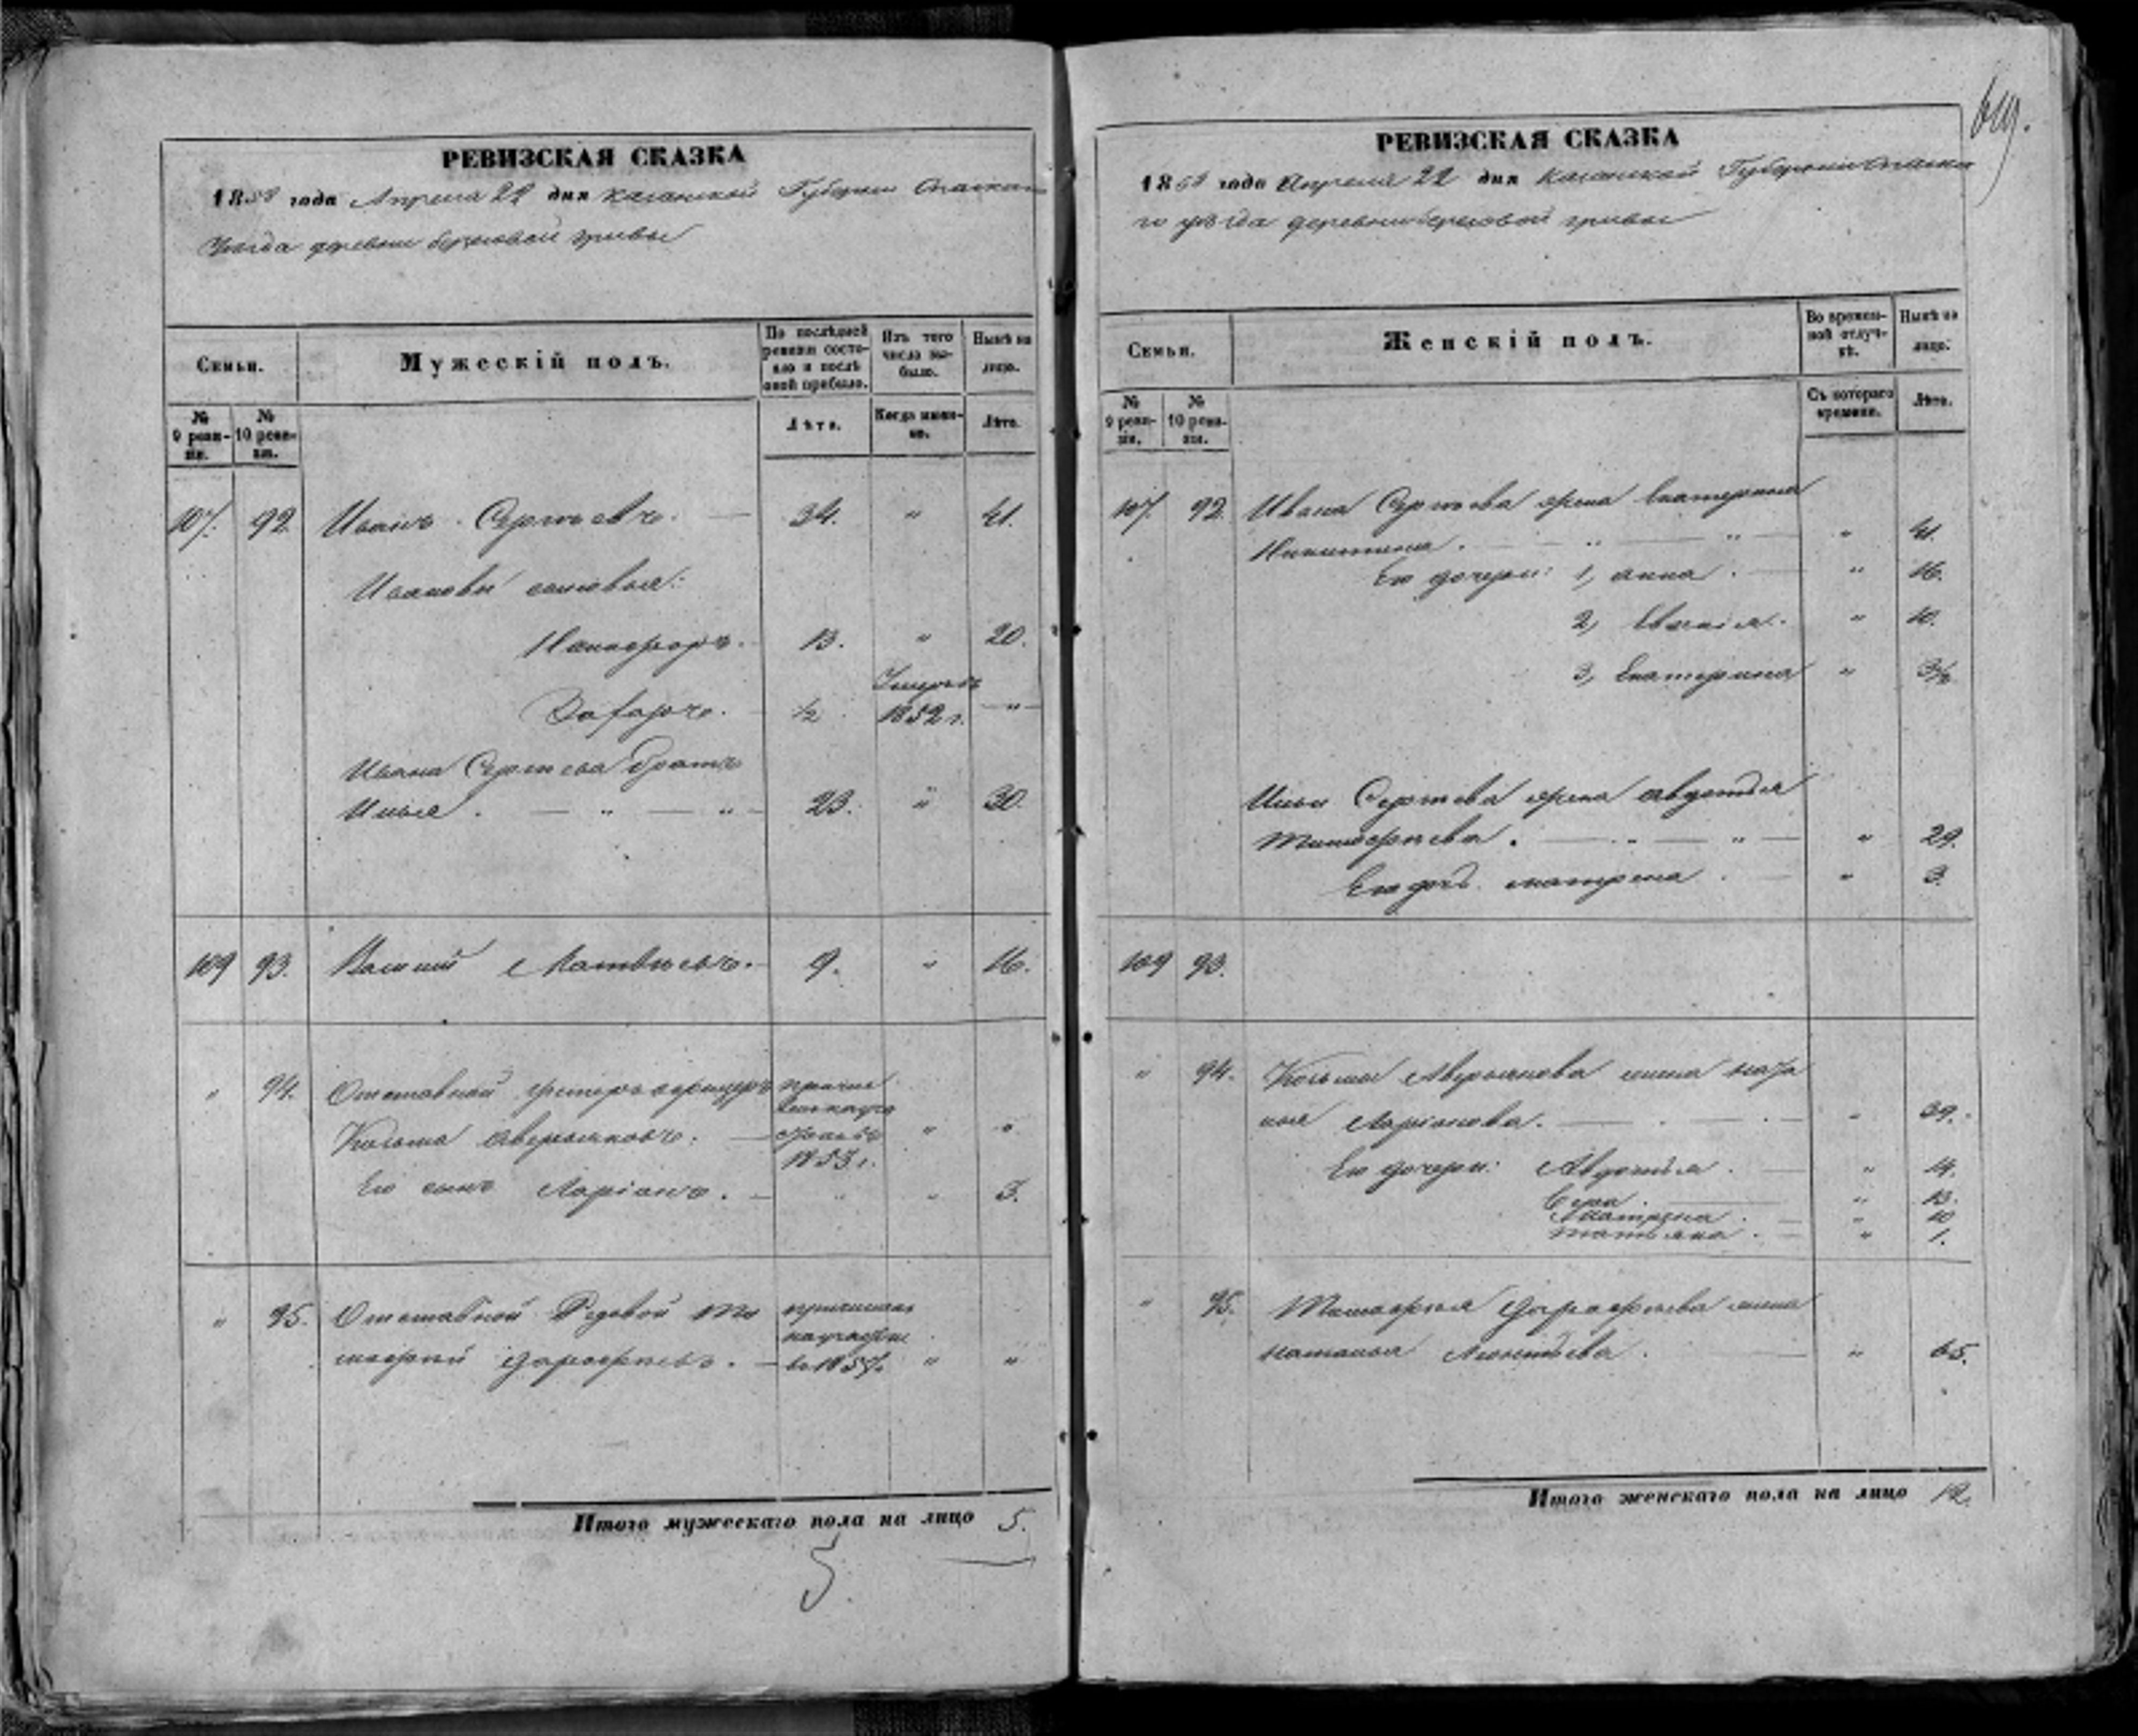 РЕВИЗСКАЯ СКАЗКА
1858 года Апреля 22 дня Казанской Губернии Спаскаго
Уезда деревни березовой гривы
Семьи.
Мужескій полъ.
По послѣдней ревизіи состояло и послѣ оной прибыло.
Изъ того числа выбыло.
Нынѣ на лицо.
№ 9 ревизіи.
№ 10 ревизіи.
Лѣта.
Когда именно.
Лѣта.
107. 92. Иванъ Сергѣевъ. 34. " 41.
Ивановы сыновья:
Никифоръ. 13. " 20.
Захаръ. ½ 1852 г. "
Ивана Сергѣева братъ
Илья. " " 23. " 30.
109 93. Василій Матвѣевъ. 9. " 16.
" 94. Отставной унтеръ офицеръ
Козьма Аверьяновъ. 1853 г. " "
Его сынъ Ларіонъ. " " 3.
" 95. Отставной Рядовой Ти
мофей Дорофѣевъ. 1857. " "
Итого мужескаго пола на лицо 5.
5.
619.
РЕВИЗСКАЯ СКАЗКА
1858 года Апреля 22 дня Казанской Губерніи Спаска
го уѣзда деревни березовой гривы
Семьи.
Женскій полъ.
Во временной отлучкѣ.
Нынѣ на лицо.
№ 9 ревизіи.
№ 10 ревизіи.
Съ котораго времени.
Лѣта.
107. 92. Ивана Сергѣева жена Екатерина
Никитина. " " " 41.
Его дочери: 1, анна. " 16.
2, " 10.
3, Екатерина " 3½
Ильи Сергѣева жена Авдотья
Тимофѣева. " " " 29.
Его дочь матрена. " 3.
109 93.
" 94. Козьмы Аверьянова жена
Ларіонова. " 39.
Его дочери: Авдотья. " 14.
" 13.
Матрена. " 10
Татьяна. " 1.
" 95. Тимофея Дорофѣева жена
наталья Леонтьева. " 65.
Итого женскаго пола на лицо 12.